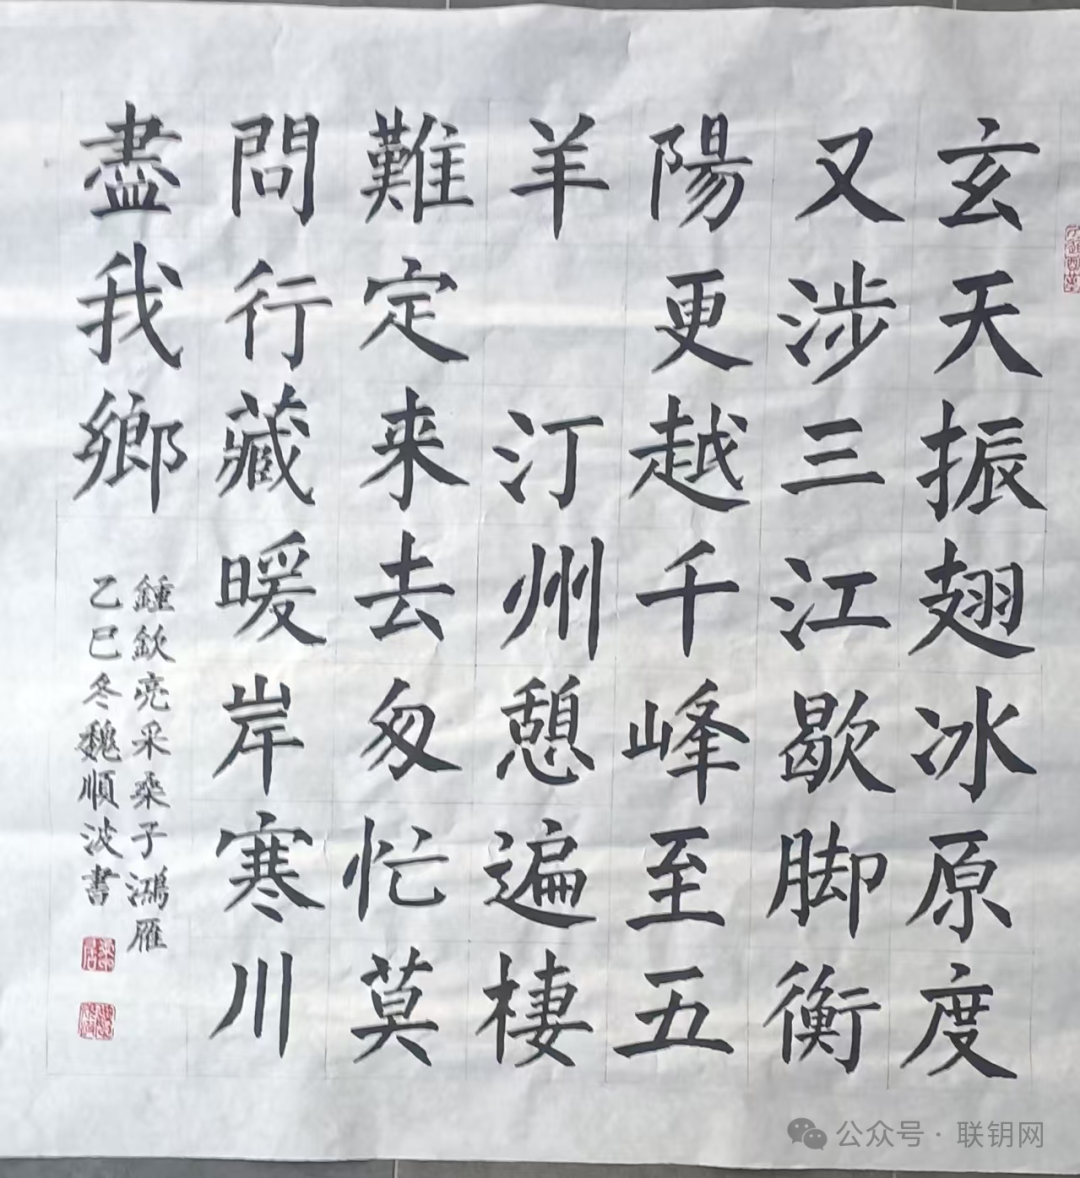 玄天振翅冰原度
又涉三江歇脚衡
陽更越千峰至五
羊 汀州憩遍棲
難定来去匆忙莫
問行藏暖岸寒川
盡我鄉
鍾欽亮采桑子鴻雁
乙巳冬魏順波書
公众号·联钥网